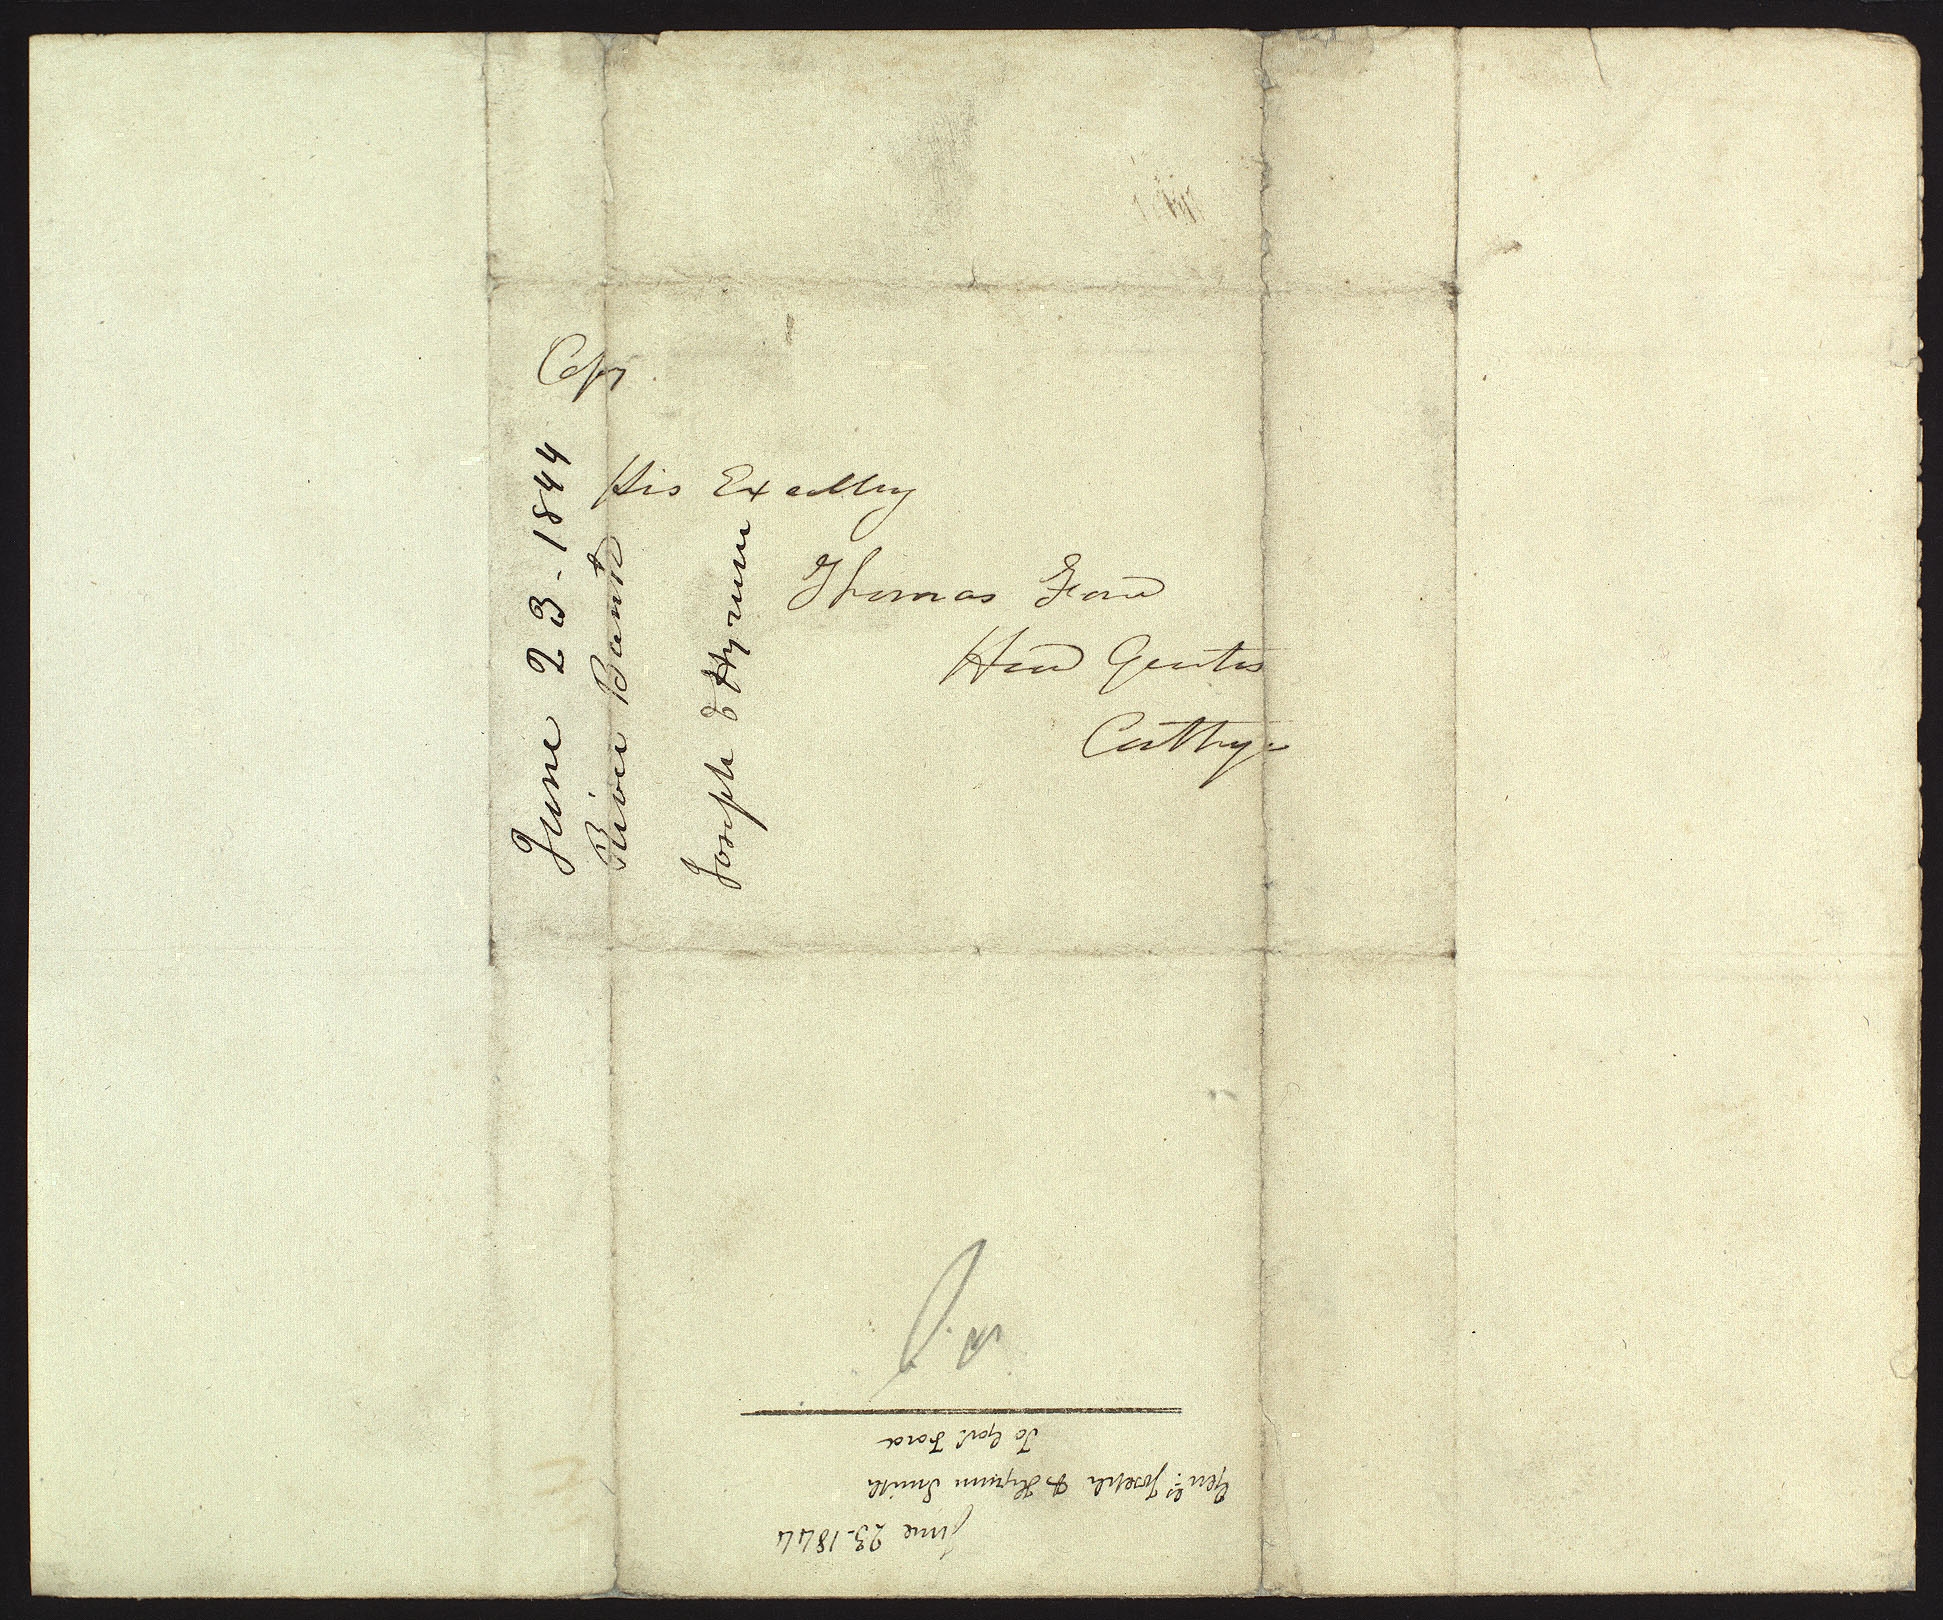 Copy
His Excelleny
Thomas Ford
Head Quarters
Carthage
June 23-1844
River Bank
Joseph & Hyrum
June 23-1844
Genls. Joseph & Hyrum Smith
To Govr Ford